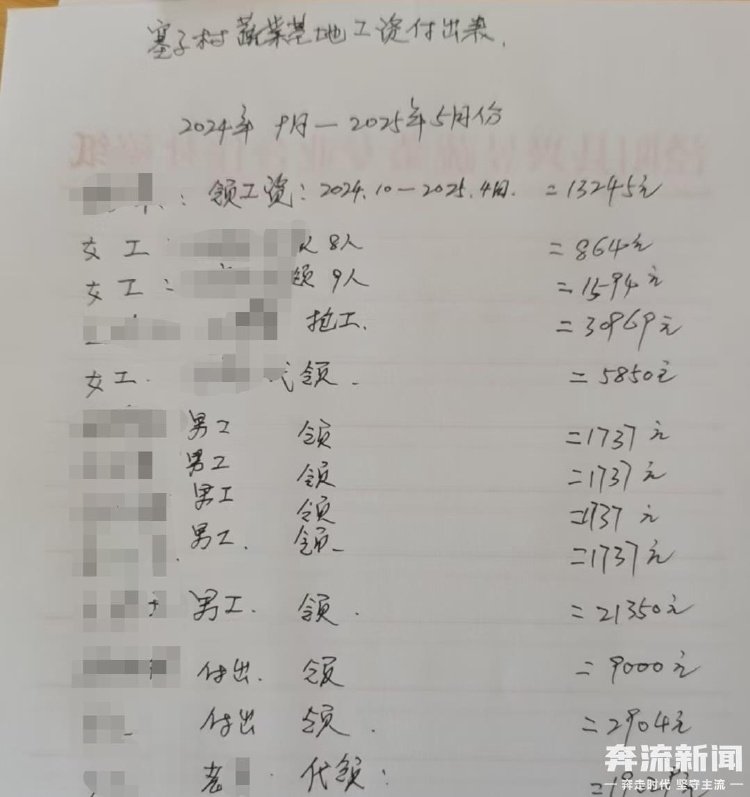 寨子村蔬菜基地工资付出表.
2024年 9月—2025年5月份
: 领工资: 2024.10—2025.4月. =13245元
女工: 8人 =864元
女工: 领 9人 =1594元
抢工. =30969元
女工. 代领. =5850元
男工 领 =1737元
男工 领 =1737元
男工 领 =1737元
男工. 领 =1737元
男工. 领. =21350元
付出. 领 =9000元
付出 领. =2904元
老 代领:
奔流新闻
奔走时代 坚守主流